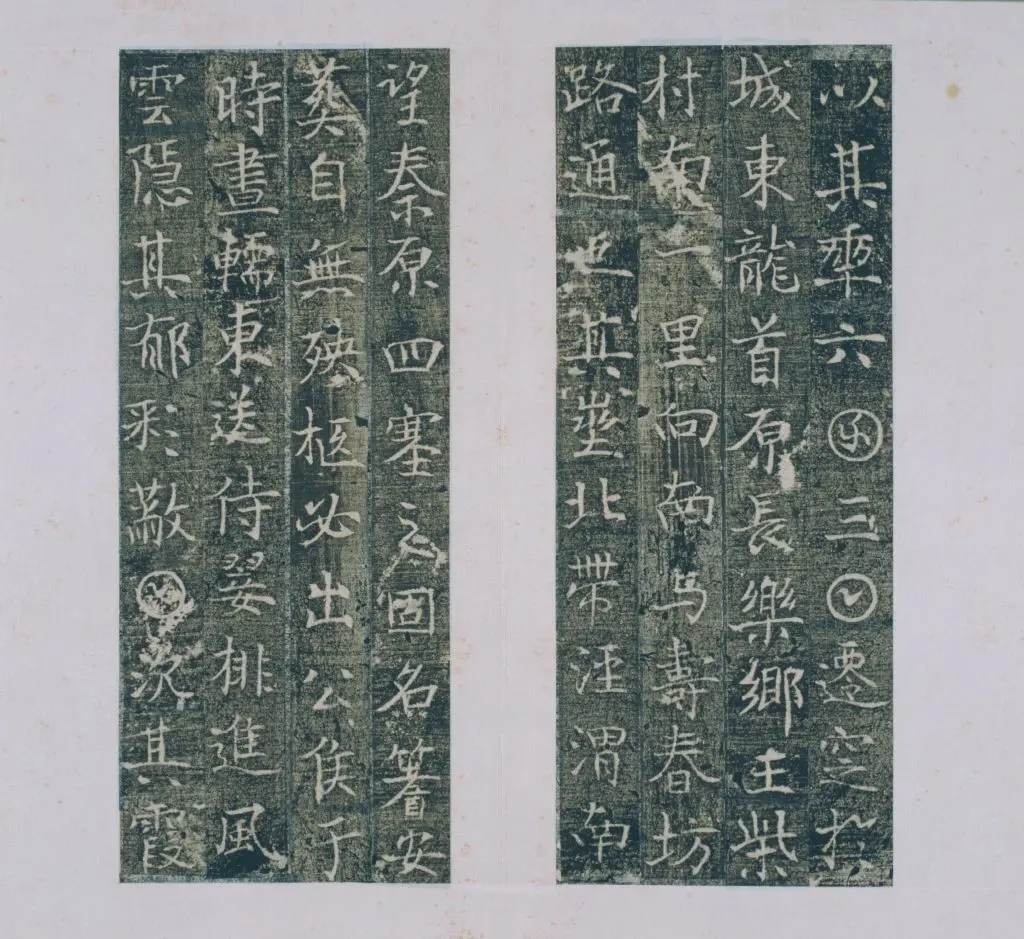 以其年六囝三𡆠遷窆於
城東龍首原長樂鄉王柴
村南一里向南与壽春坊
路通也其塋北帶涇渭南
望秦原四塞之固名蓍安
葬自無殃柩必出公侯于
時晝轜東送侍翣排進風
雲隱其郁彩蔽𡆠沉其霞